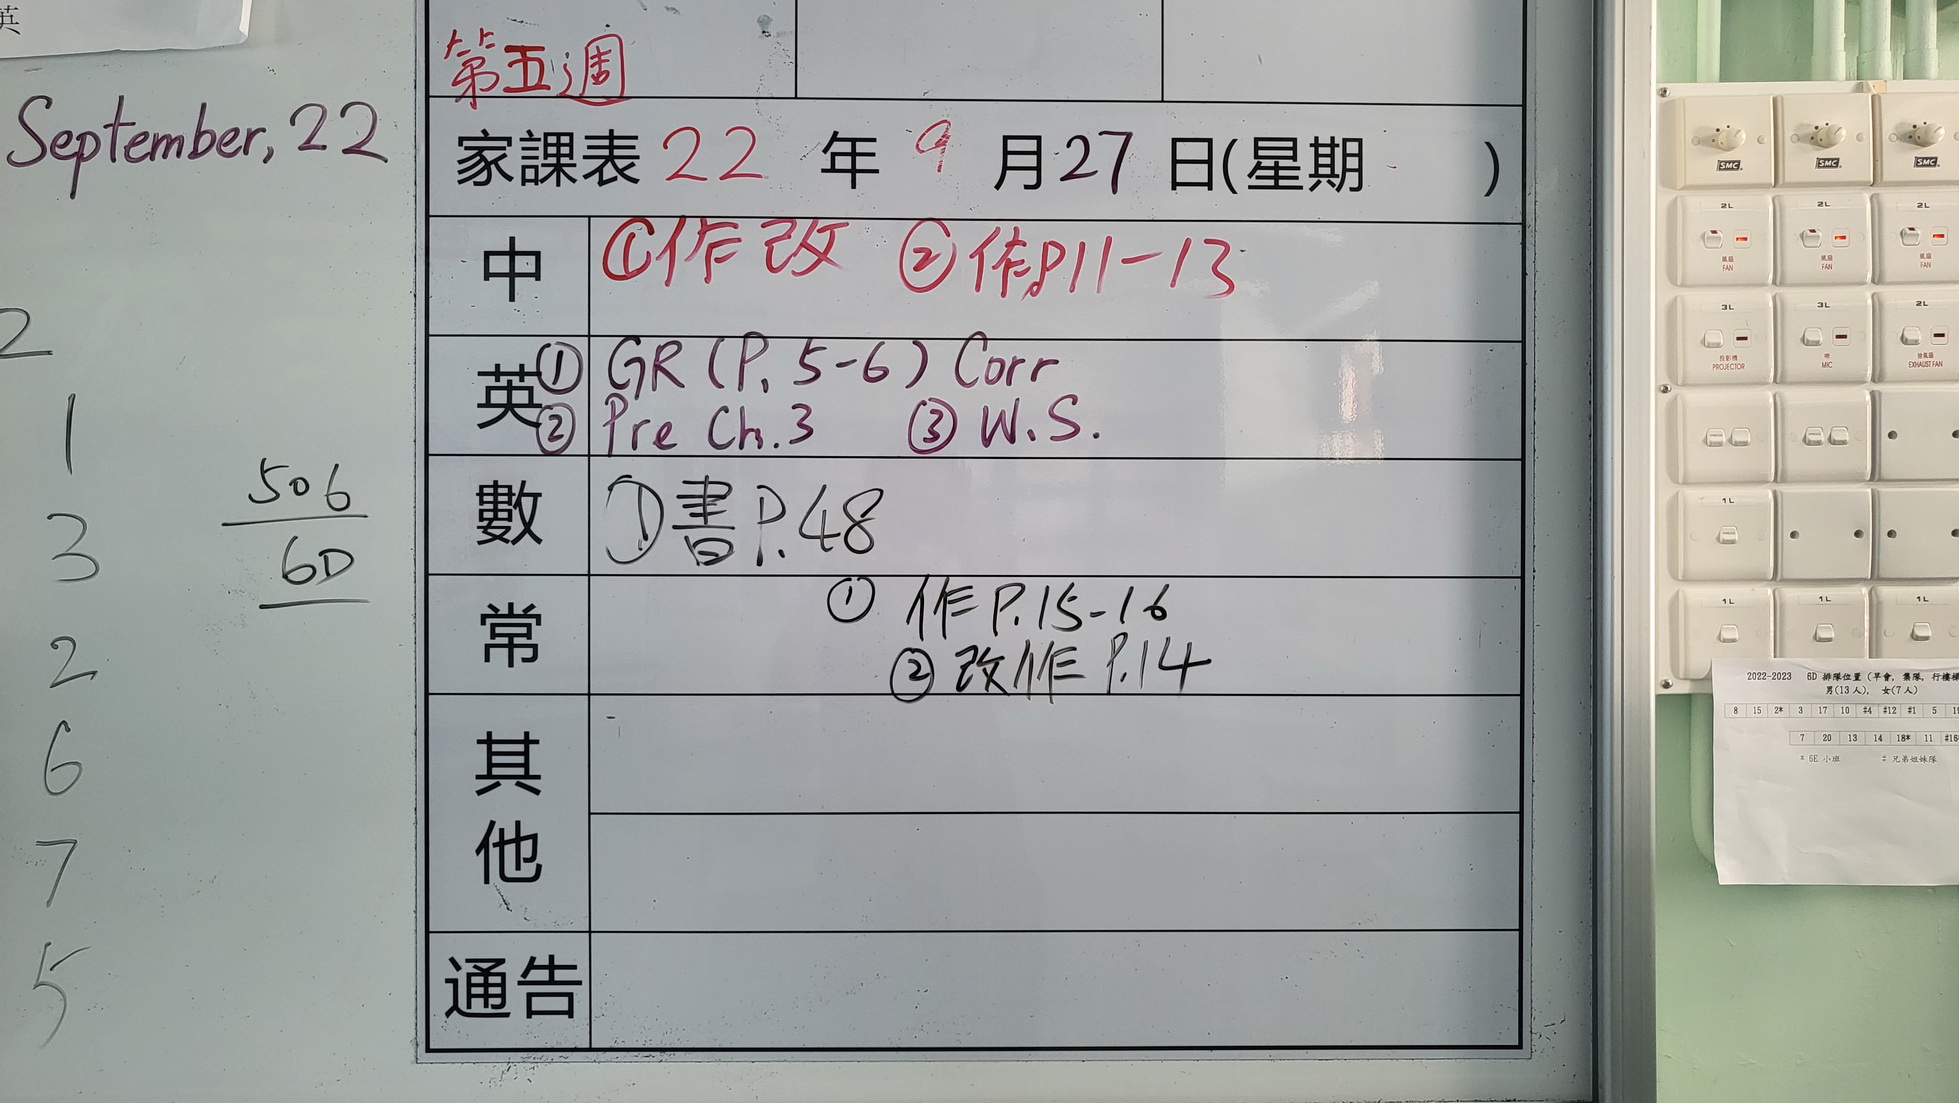 英
September, 22
2
1
3
2
6
7
5
506
6D
第五週
家課表 22 年 9 月 27 日(星期 )
中 ①作改 ②作P.11-13
英 ① GR (P. 5-6) Corr
② Pre Ch.3 ③ W.S.
數 ①書P.48
常 ① 作P.15-16
② 改作 P.14
其他
通告
SMC SMC SMC
2L 2L 2L
風扇 風扇 風扇
FAN FAN FAN
3L 3L 2L
投影機 咪 抽氣扇
PROJECTOR MIC EXHAUST FAN
1L
1L 1L 1L
2022-2023 6D 排隊位置 (早會, 集隊, 行樓梯
男(13人), 女(7人)
8 15 2* 3 17 10 #4 #12 #1 5
7 20 13 14 18* 11 #16
* 6E 小班 # 兄弟姐妹隊